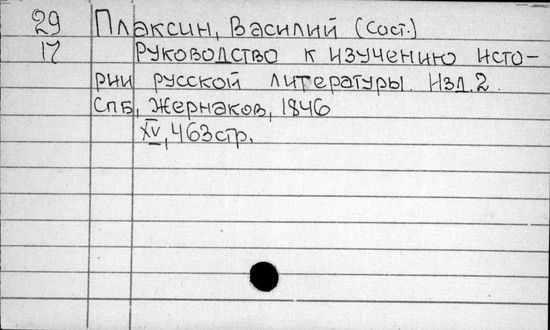 29 Плаксин, Василий (сост.)
17 Руководство к изучению исто-
рии русской литературы. Изд. 2.
Спб, Жернаков, 1846
XV, 463 стр.